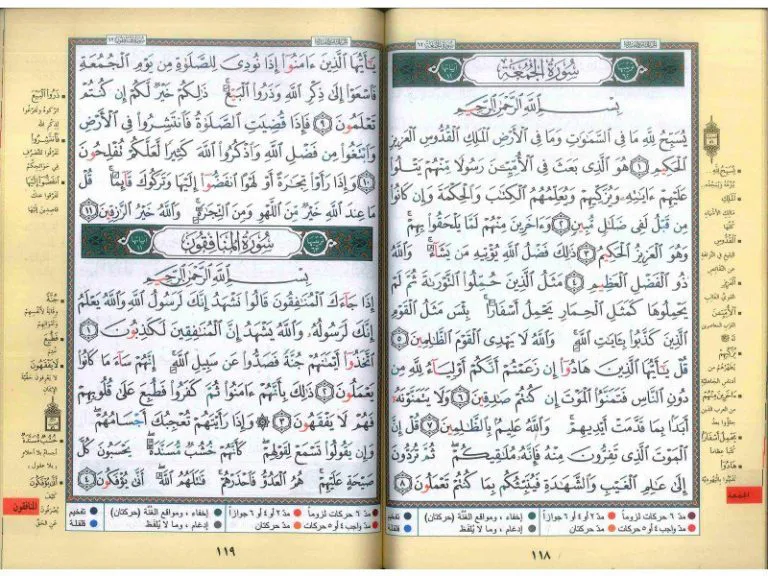 سُورَةُ الجُمُعَةِ
بِسْمِ اللَّهِ الرَّحْمَٰنِ الرَّحِيمِ
يُسَبِّحُ لِلَّهِ مَا فِي السَّمَٰوَٰتِ وَمَا فِي الْأَرْضِ الْمَلِكِ الْقُدُّوسِ الْعَزِيزِ
الْحَكِيمِ ١ هُوَ الَّذِي بَعَثَ فِي الْأُمِّيِّـۧنَ رَسُولًا مِّنْهُمْ يَتْلُوا
عَلَيْهِمْ ءَايَٰتِهِۦ وَيُزَكِّيهِمْ وَيُعَلِّمُهُمُ الْكِتَٰبَ وَالْحِكْمَةَ وَإِن كَانُوا
مِن قَبْلُ لَفِي ضَلَٰلٍ مُّبِينٍ ٢ وَءَاخَرِينَ مِنْهُمْ لَمَّا يَلْحَقُوا بِهِمْ
وَهُوَ الْعَزِيزُ الْحَكِيمُ ٣ ذَٰلِكَ فَضْلُ اللَّهِ يُؤْتِيهِ مَن يَشَآءُ وَاللَّهُ
ذُو الْفَضْلِ الْعَظِيمِ ٤ مَثَلُ الَّذِينَ حُمِّلُوا التَّوْرَىٰةَ ثُمَّ لَمْ
يَحْمِلُوهَا كَمَثَلِ الْحِمَارِ يَحْمِلُ أَسْفَارًا بِئْسَ مَثَلُ الْقَوْمِ
الَّذِينَ كَذَّبُوا بِـَٔايَٰتِ اللَّهِ وَاللَّهُ لَا يَهْدِي الْقَوْمَ الظَّٰلِمِينَ ٥
قُلْ يَٰٓأَيُّهَا الَّذِينَ هَادُوٓا إِن زَعَمْتُمْ أَنَّكُمْ أَوْلِيَآءُ لِلَّهِ مِن
دُونِ النَّاسِ فَتَمَنَّوُا الْمَوْتَ إِن كُنتُمْ صَٰدِقِينَ ٦ وَلَا يَتَمَنَّوْنَهُۥٓ
أَبَدًا بِمَا قَدَّمَتْ أَيْدِيهِمْ وَاللَّهُ عَلِيمٌ بِالظَّٰلِمِينَ ٧ قُلْ إِنَّ
الْمَوْتَ الَّذِي تَفِرُّونَ مِنْهُ فَإِنَّهُۥ مُلَٰقِيكُمْ ثُمَّ تُرَدُّونَ
إِلَىٰ عَٰلِمِ الْغَيْبِ وَالشَّهَٰدَةِ فَيُنَبِّئُكُم بِمَا كُنتُمْ تَعْمَلُونَ ٨
يُسَبِّحُ لِلَّهِ
مَالِكِ الأشياء
كلها
القُدُّوسِ
الأُمِّيِّينَ
العرب المعاصرين
يُزَكِّيهِمْ
يطهرهم من
وَآخَرِينَ مِنْهُمْ
من العرب الذين
يَحْمِلُ أَسْفَارًا
كتبا عظاما
هَادُوا
الجمعة
مدّ ٦ حركات لزوماً
مدّ ٢ أو ٤ أو ٦ جوازاً
إخفاء، ومواقع الغُنَّة (حركتان)
تفخيم
مدّ واجب ٤ أو ٥ حركات
مدّ حركتان
إدغام، وما لا يُلفَظ
قلقلة
١١٨
يَٰٓأَيُّهَا الَّذِينَ ءَامَنُوٓا إِذَا نُودِيَ لِلصَّلَوٰةِ مِن يَوْمِ الْجُمُعَةِ
فَاسْعَوْا إِلَىٰ ذِكْرِ اللَّهِ وَذَرُوا الْبَيْعَ ذَٰلِكُمْ خَيْرٌ لَّكُمْ إِن كُنتُمْ
تَعْلَمُونَ ٩ فَإِذَا قُضِيَتِ الصَّلَوٰةُ فَانتَشِرُوا فِي الْأَرْضِ
وَابْتَغُوا مِن فَضْلِ اللَّهِ وَاذْكُرُوا اللَّهَ كَثِيرًا لَّعَلَّكُمْ تُفْلِحُونَ
١٠ وَإِذَا رَأَوْا تِجَٰرَةً أَوْ لَهْوًا انفَضُّوٓا إِلَيْهَا وَتَرَكُوكَ قَآئِمًا قُلْ
مَا عِندَ اللَّهِ خَيْرٌ مِّنَ اللَّهْوِ وَمِنَ التِّجَٰرَةِ وَاللَّهُ خَيْرُ الرَّٰزِقِينَ ١١
سُورَةُ المُنَافِقُونَ
بِسْمِ اللَّهِ الرَّحْمَٰنِ الرَّحِيمِ
إِذَا جَآءَكَ الْمُنَٰفِقُونَ قَالُوا نَشْهَدُ إِنَّكَ لَرَسُولُ اللَّهِ وَاللَّهُ يَعْلَمُ
إِنَّكَ لَرَسُولُهُۥ وَاللَّهُ يَشْهَدُ إِنَّ الْمُنَٰفِقِينَ لَكَٰذِبُونَ ١
اتَّخَذُوٓا أَيْمَٰنَهُمْ جُنَّةً فَصَدُّوا عَن سَبِيلِ اللَّهِ إِنَّهُمْ سَآءَ مَا كَانُوا
يَعْمَلُونَ ٢ ذَٰلِكَ بِأَنَّهُمْ ءَامَنُوا ثُمَّ كَفَرُوا فَطُبِعَ عَلَىٰ قُلُوبِهِمْ
فَهُمْ لَا يَفْقَهُونَ ٣ ۞ وَإِذَا رَأَيْتَهُمْ تُعْجِبُكَ أَجْسَامُهُمْ
وَإِن يَقُولُوا تَسْمَعْ لِقَوْلِهِمْ كَأَنَّهُمْ خُشُبٌ مُّسَنَّدَةٌ يَحْسَبُونَ كُلَّ
صَيْحَةٍ عَلَيْهِمْ هُمُ الْعَدُوُّ فَاحْذَرْهُمْ قَٰتَلَهُمُ اللَّهُ أَنَّىٰ يُؤْفَكُونَ ٤
ذَرُوا البَيْعَ
فَانْتَشِرُوا
انْفَضُّوا إِلَيْهَا
قاصدين إليها
جُنَّةً
وقاية لأنفسهم
وأموالهم
فَطُبِعَ
لَا يَفْقَهُونَ
خُشُبٌ مُسَنَّدَةٌ
أجسام بلا أحلام
أَنَّى يُؤْفَكُونَ
عن الحق
المنافقون
مدّ ٦ حركات لزوماً
مدّ ٢ أو ٤ أو ٦ جوازاً
إخفاء، ومواقع الغُنَّة (حركتان)
تفخيم
مدّ واجب ٤ أو ٥ حركات
مدّ حركتان
إدغام، وما لا يُلفَظ
قلقلة
١١٩